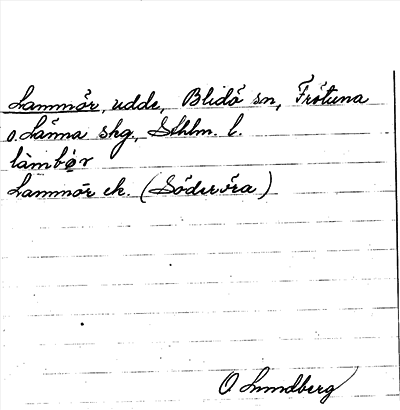 Lammör, udde, Blidö sn, Frötuna
o. Länna skg, Sthlm. l.
làmbør
Lammör ek. (Söderöra)
O Lundberg